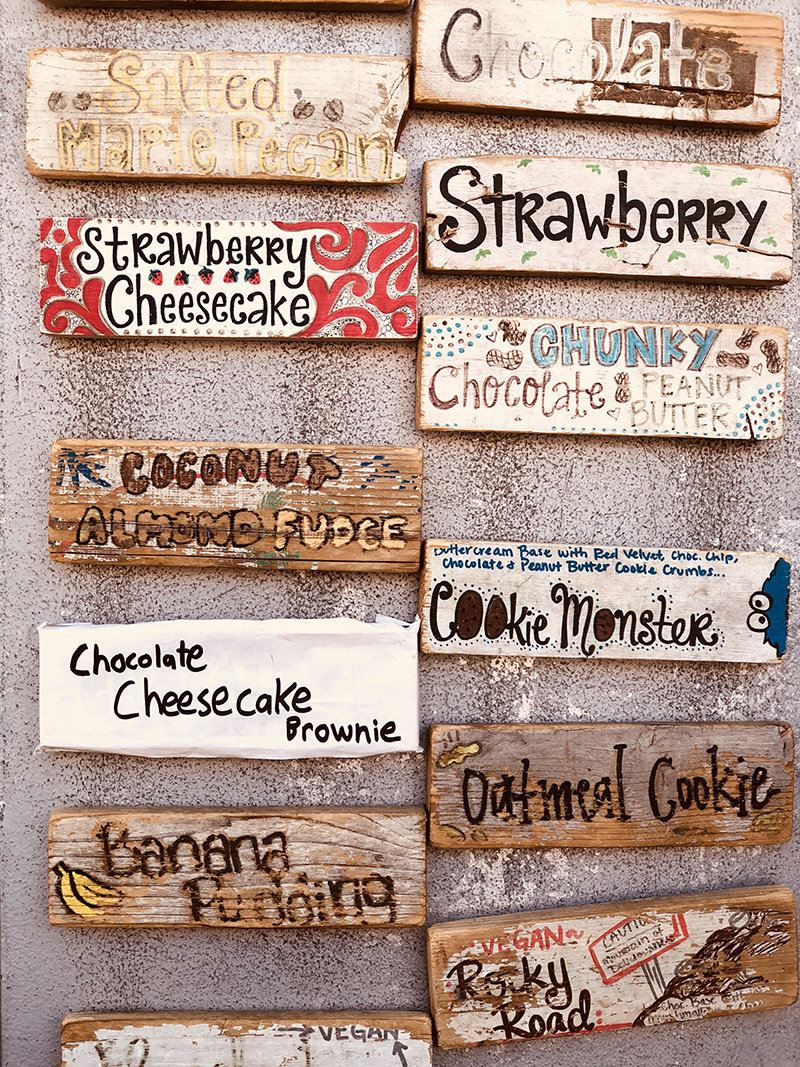 Salted
Maple Pecan
Strawberry
Cheesecake
COCONUT
ALMOND FUDGE
Chocolate
Cheesecake
Brownie
Banana
Pudding
VEGAN
Chocolate
Strawberry
CHUNKY
Chocolate PEANUT
BUTTER
Buttercream Base with Red Velvet, Choc. Chip,
Chocolate & Peanut Butter Cookie Crumbs...
Cookie Monster
Oatmeal Cookie
VEGAN
CAUTION
Mountain of
Deliciousness
Rocky
Road
Choc. Base